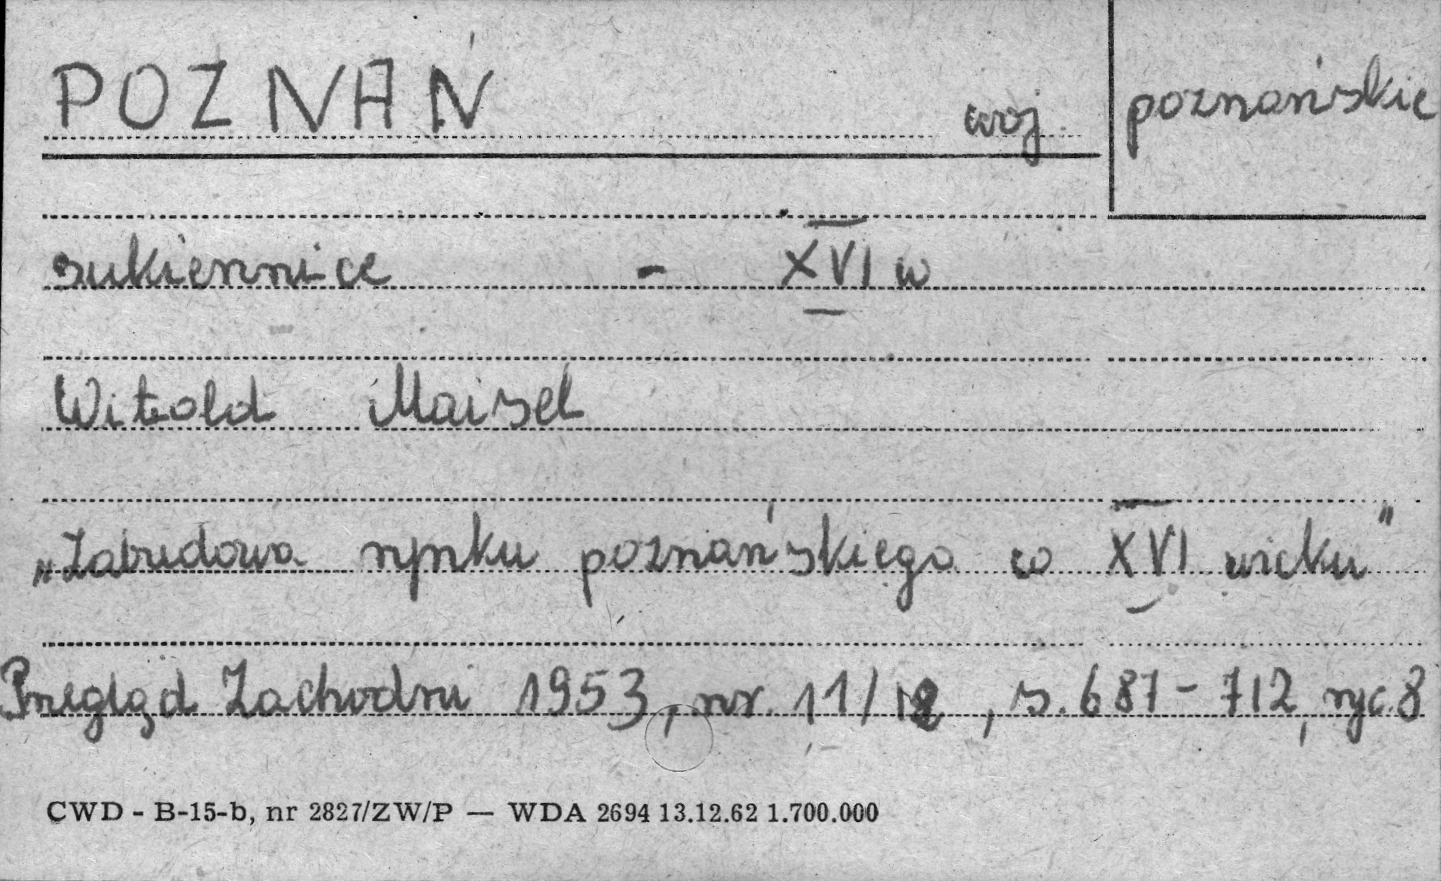 POZNAŃ woj. poznańskie
sukiennice - XVI w
Witold Maisel
„Zabudowa rynku poznańskiego w XVI wieku"
Przegląd Zachodni 1953, nr. 11/12, s. 687-712, ryc. 8
CWD - B-15-b, nr 2827/ZW/P — WDA 2694 13.12.62 1.700.000